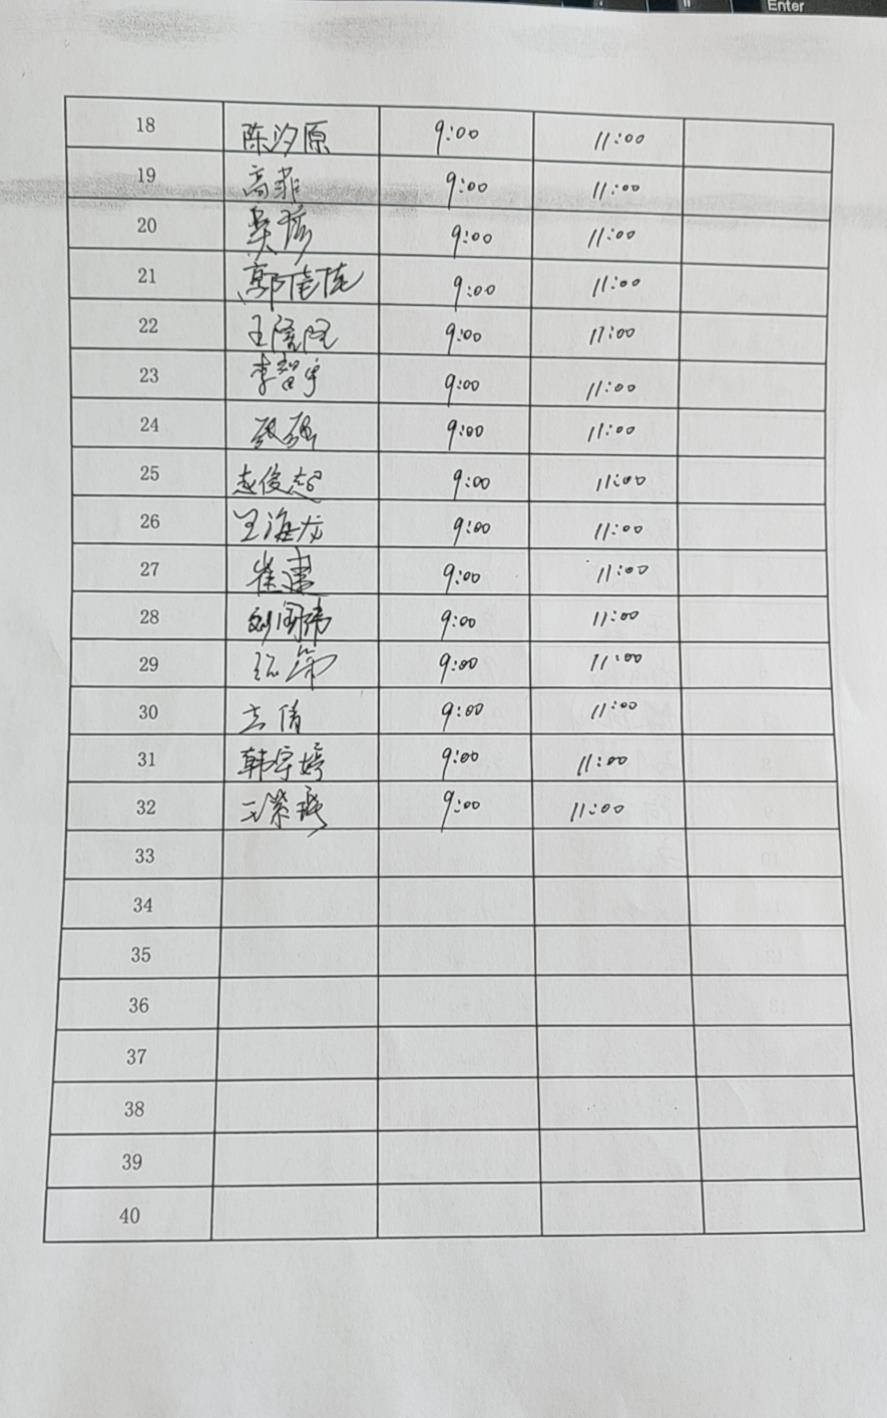 Enter
18 陈汐原 9:00 11:00
19 高菲 9:00 11:00
20 9:00 11:00
21 9:00 11:00
22 王 9:00 11:00
23 李智宇 9:00 11:00
24 9:00 11:00
25 赵俊超 9:00 11:00
26 王海龙 9:00 11:00
27 崔建 9:00 11:00
28 刘闰伟 9:00 11:00
29 9:00 11:00
30 9:00 11:00
31 韩宇婷 9:00 11:00
32 9:00 11:00
33
34
35
36
37
38
39
40